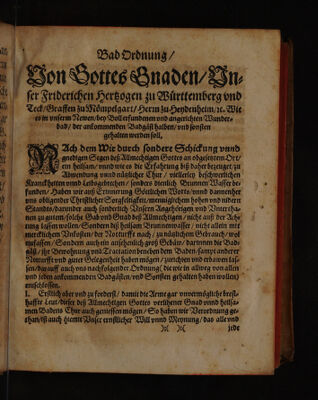 Bad Ordnung/
Von Gottes Gnaden/ Vn-
ser Friderichen Hertzogen zu Württemberg vnd
Teck/ Graffen zu Mömpelgart/ Herrn zu Heydenheim/ ꝛc. Wie
es in vnserm Newen/ bey Boll erfundenen vnd angerichten Wunder-
bad/ der ankommenden Badgäst halben/ vnd sonsten
gehalten werden soll.
NAch dem Wir durch sondere Schickung vnnd
gnedigen Segen deß Allmechtigen Gottes an obgesetztem Ort/
ein heilsam/ vnnd wie es die Erfahrung biß daher bezeuget zu
Abwendung vnnd nützlicher Chur/ vielerley beschwerlichen
Kranckheiten vnnd Leibsgebrechen/ sonders dienlich Brunnen Wasser be-
funden/ Haben wir auß Erinnerung Göttlichen Worts/ vnnd dannenher
vns obligender Christlicher Sorgfeltigkeit/ menniglichem hohen vnd nidern
Stands/ darunder auch sonderlich Vnsern Angehörigen vnd Vndertha-
nen zu gutem/ solche Gab vnd Gnad deß Allmechtigen/ nicht auß der Ach-
tung lassen wollen/ Sondern diß heilsam Brunnenwasser/ nicht allein mit
mercklichem Vnkosten/ der Notturfft nach/ zu nützlichem Gebrauch/ wol
einfassen/ Sondern auch ein ansehenlich groß Gebäw/ darinnen die Bad-
gäst/ ihr Herberg vnd Tractation beneben dem Baden sampt anderer
Notturfft vnd guter Gelegenheit haben mögen/ zurichten vnd erbawen las-
sen/ darauff auch vns nachfolgender Ordnung/ die wie in allweg von allen
vnd jeden ankommenden Badgästen/ vnd Sonsten gehalten haben wollen/
entschlossen.
I. Erstlich aber vnd zu forderst/ damit die Arme gar vnvermögliche brest-
haffte Leut/ dieser deß Allmechtigen Gottes verlihener Gnad vnnd heilsa-
men Badens Chur auch geniessen mögen/ So haben wir Verordnung ge-
than/ ist auch hiemit Vnser ernstlicher Will vnnd Meynung/ das alle vnd
jede